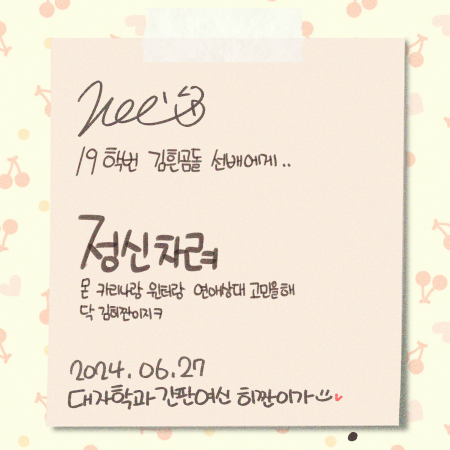 Hee
19학번 김흰곰돌 선배에게..
정신차려
몬 카리나랑 윈터랑 연애상대 고민을해
닥 김히짠이지ㅋ
2024.06.27
대자학과 간판여신 히짠이가